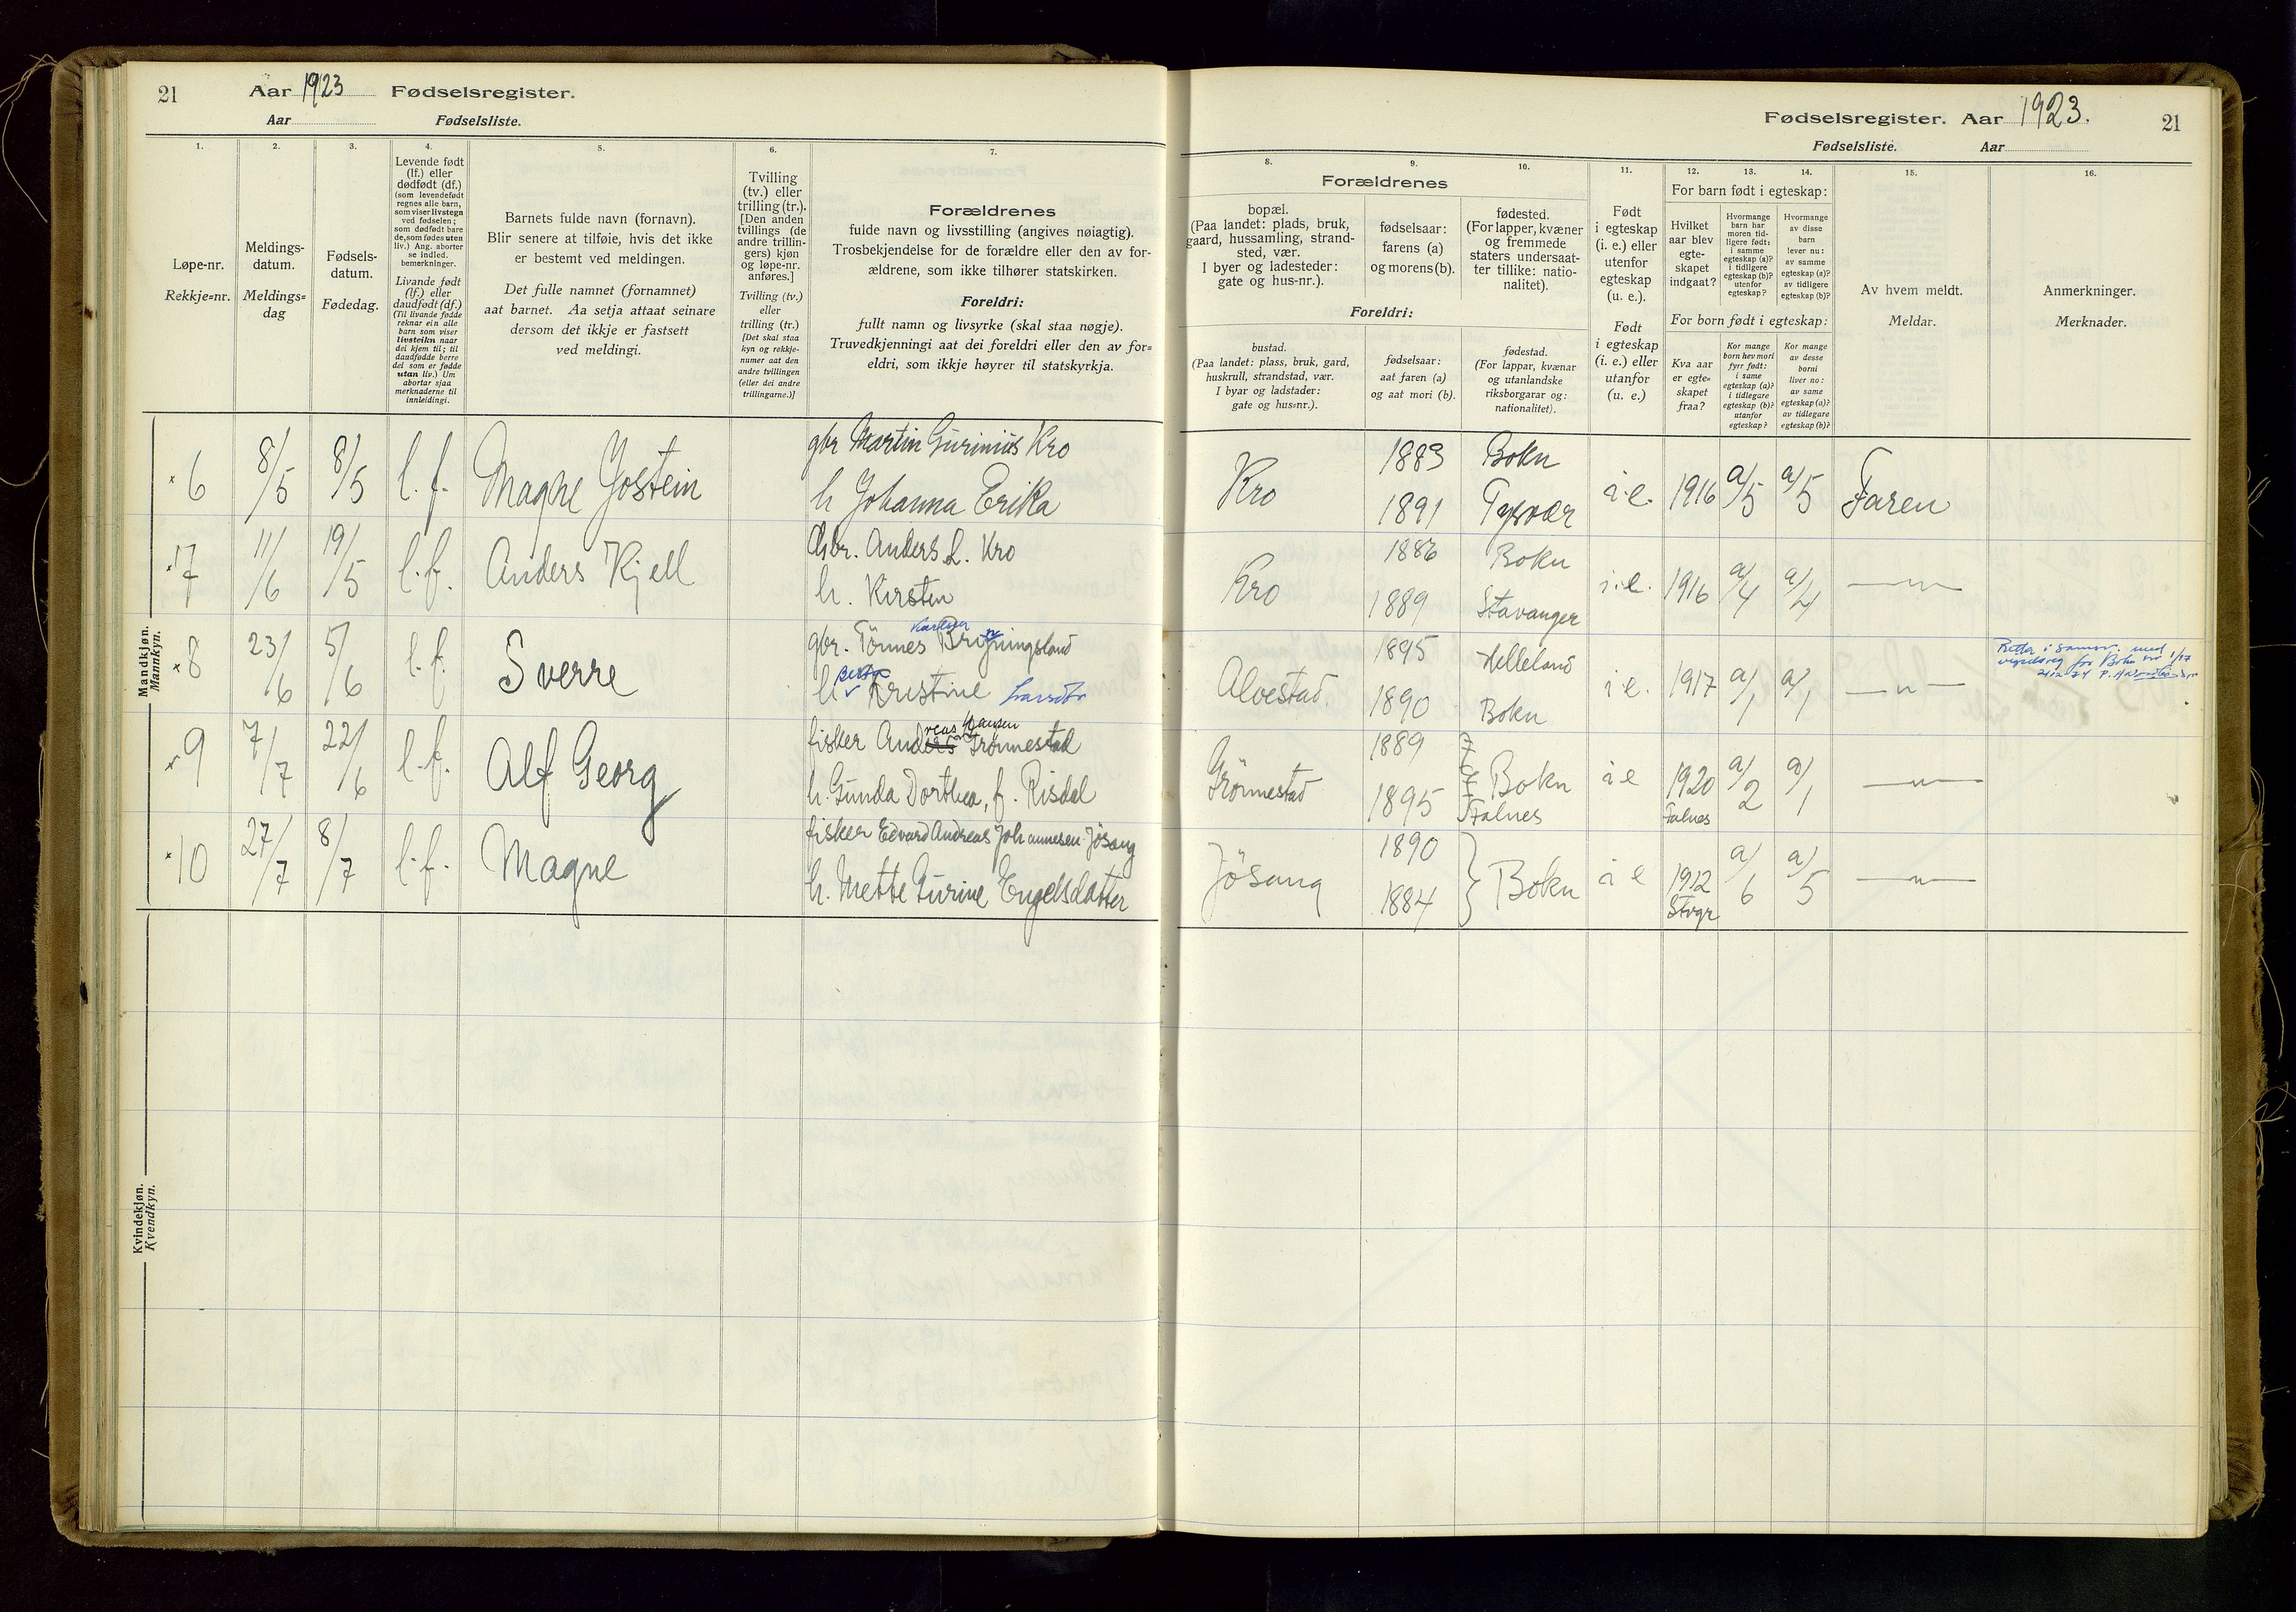 21
Aar 1923 Fødselsregister.
Aar Fødselsliste.
1.
2.
3.
4.
5.
6.
7.
Løpe-nr.
Rekkje=nr.
Meldings-
datum.
Meldings=
dag
Fødsels-
datum.
Fødedag.
Levende født
(lf.) eller
dødfødt (df.)
(som levendefødt
regnes alle barn,
som viser livstegn
ved fødselen;
som dødfødt bare
de, som fødes uten
liv.) Ang. aborter
se indled.
bemerkninger.
Livande født
(lf.) eller
daudfødt (df.)
(Til livande fødde
reknar ein alle
barn som viser
livsteikn naar
dei kjem til; til
daudfødde berre
dei som er fødde
utan liv.) Um
abortar sjaa
merknaderne til
innleidingi.
Barnets fulde navn (fornavn).
Blir senere at tilføie, hvis det ikke
er bestemt ved meldingen.
Det fulle namnet (fornamnet)
aat barnet. Aa setja attaat seinare
dersom det ikkje er fastsett
ved meldingi.
Tvilling
(tv.) eller
trilling (tr.).
[Den anden
tvillings (de
andre trillin-
gers) kjøn
og løpe-nr.
anføres.]
Tvilling (tv.)
eller
trilling (tr.)
[Det skal staa
kyn og rekkje-
numer aat den
andre tvillingen
(eller dei andre
trillingarne.)]
Forældrenes
fulde navn og livsstilling (angives nøiagtig).
Trosbekjendelse for de forældre eller den av for-
ældrene, som ikke tilhører statskirken.
Foreldri:
fullt namn og livsyrke (skal staa nøgje).
Truvedkjenningi aat dei foreldri eller den av for=
eldri, som ikkje høyrer til statskyrkja.
Mandkjøn.
Mannkyn.
6 8/5 8/5 l. f. Magne Jostein
gbr Martin Gurinius Kro
h Johanna Erika
7 11/6 19/5 l. f. Anders Kjell
gbr. Anders L. Kro
h. Kirsten
8 23/6 5/6 l. f. Sverre
gbr. Tönnes Bruningsland
h Kristine
9 7/7 22/6 l. f. Alf Georg
reas Hansen
fisker Anders Grönnestad
h. Gunda Dorthea, f. Risdal
10 27/7 8/7 l. f. Magne
fisker Edvard Andreas Johannesen Jösang
h. Mette Gurine Engelsdatter
Kvindekjøn.
Kvendkyn.
Fødselsregister. Aar 1923.
21
Fødselsliste. Aar
8.
9.
10.
11.
12.
13.
14.
15.
16.
Forældrenes
bopæl.
(Paa landet: plads, bruk,
gaard, hussamling, strand-
sted, vær.
I byer og ladesteder:
gate og hus-nr.).
fødselsaar:
farens (a)
og morens (b).
fødested.
(For lapper, kvæner
og fremmede
staters undersaat-
ter tillike: natio-
nalitet).
Foreldri:
bustad.
(Paa landet: plass, bruk, gard,
huskrull, strandstad, vær.
I byar og ladstader:
gate og hus=nr.).
fødselsaar:
aat faren (a)
og aat mori (b).
fødestad.
(For lappar, kvænar
og utanlandske
riksborgarar og:
nationalitet).
Født
i egteskap
(i. e.) eller
utenfor
egteskap
(u. e.).
Født
i egteskap
(i. e.) eller
utanfor
(u. e.)
For barn født i egteskap:
Hvilket
aar blev
egte-
skapet
indgaat?
Hvormange
barn har
moren tid-
ligere født:
i samme
egteskap (a)?
i tidligere
egteskap (b)?
utenfor
egteskap?
Hvormange
av disse
barn
lever nu:
av samme
egteskap (a)?
av tidligere
egteskap (b)?
For born født i egteskap:
Kva aar
er egte=
skapet
fraa?
Kor mange
born hev mori
fyrr født:
i same
egteskap (a)?
i tidlegare
egteskap (b)?
utanfor
egteskap?
Kor mange
av desse
borni
liver no:
av same
egteskap (a)?
av tidlegare
egteskap (b)?
Av hvem meldt.
Meldar.
Anmerkninger.
Merknader.
Kro 1883 Bokn i.e. 1916 a/5 a/5 Faren
1891 Tysvær
Kro 1886 Bokn i.e. 1916 a/4 a/4 —"—
1889 Stavanger
Alvestad. 1895 Helleland i e. 1917 a/1 a/1 —"—
1890 Bokn
Grönnestad 1889 Bokn i e 1920 a/2 a/1 —"—
1895 Falnes Falnes
Jösang 1890 Bokn i e 1912 a/6 a/5 —"—
1884 Stvgr